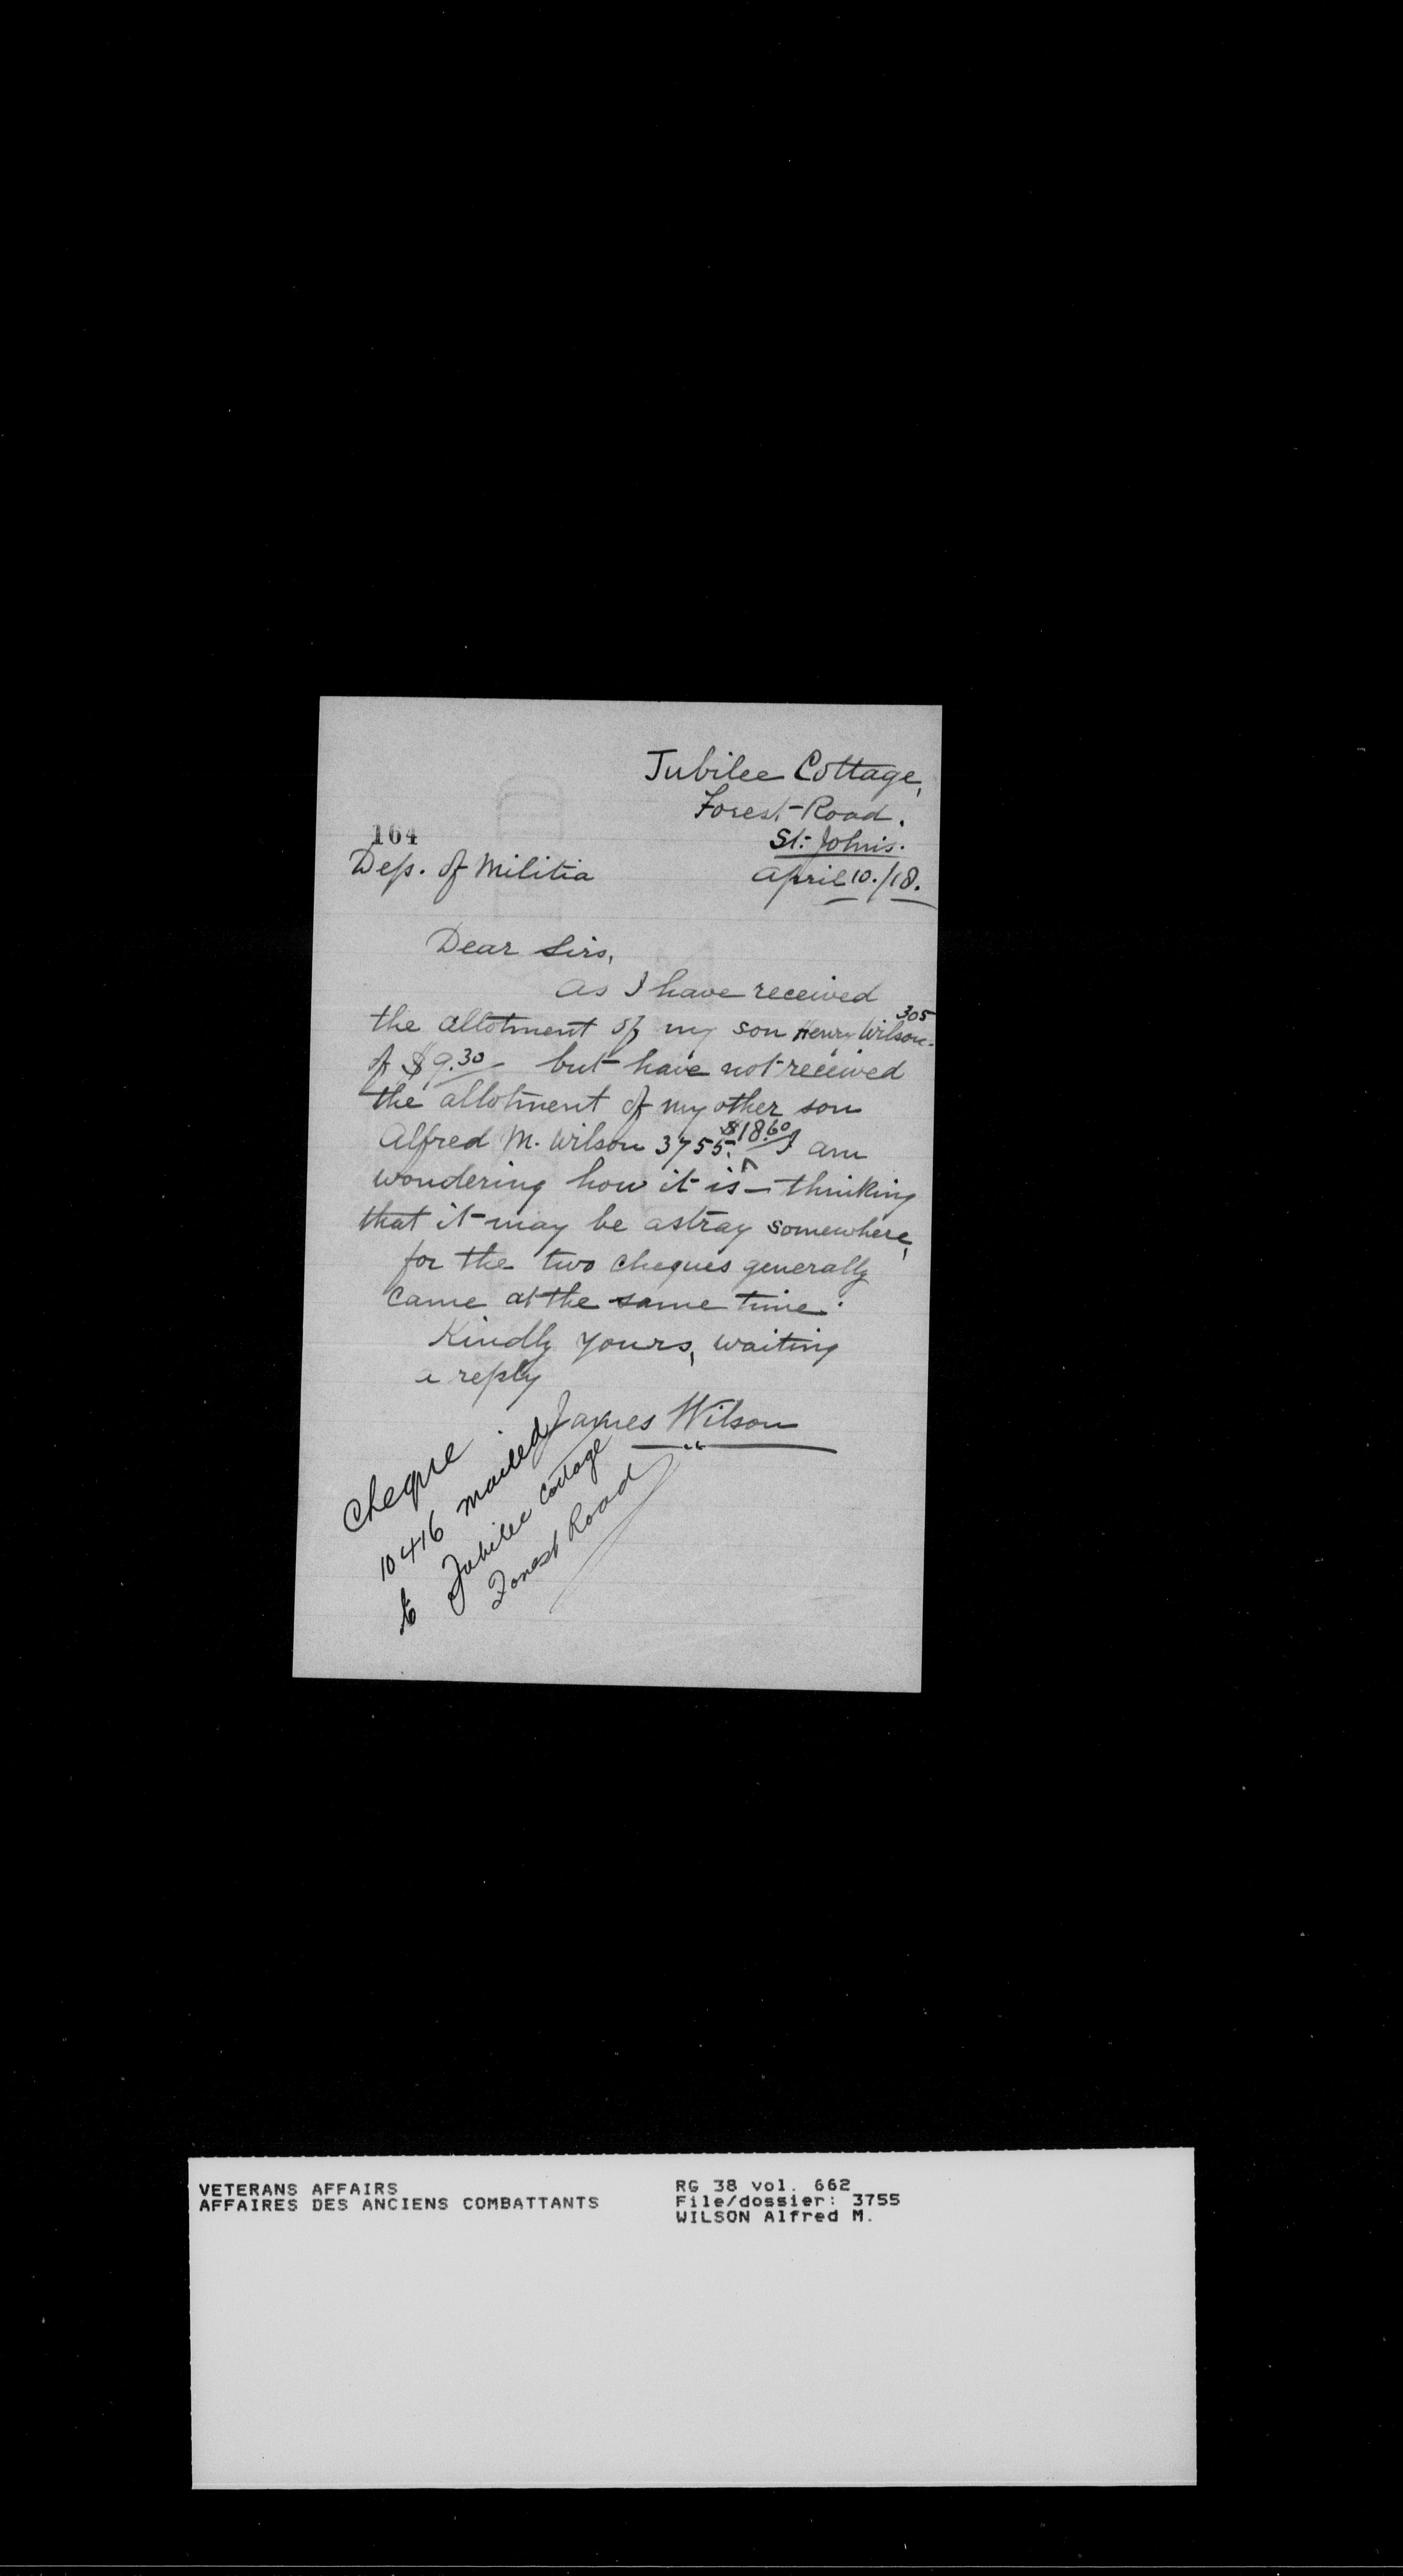 Jubilee Cottage,
Forest Road.
St. John's.
164
Dep. of Militia
April 10./18.
Dear Sirs,
As I have received
the allotment of my son Henry Wilson 305
of $9.30 but have not received
the allotment of my other son
Alfred M. Wilson 3755. $18.60 I am
wondering how it is – thinking
that it may be astray somewhere,
for the two cheques generally
came at the same time.
Kindly yours, waiting
a reply
James Wilson
Cheque
10416 mailed
to Jubilee Cottage
Forest Road
VETERANS AFFAIRS
AFFAIRES DES ANCIENS COMBATTANTS
RG 38 vol. 662
File/dossier: 3755
WILSON Alfred M.